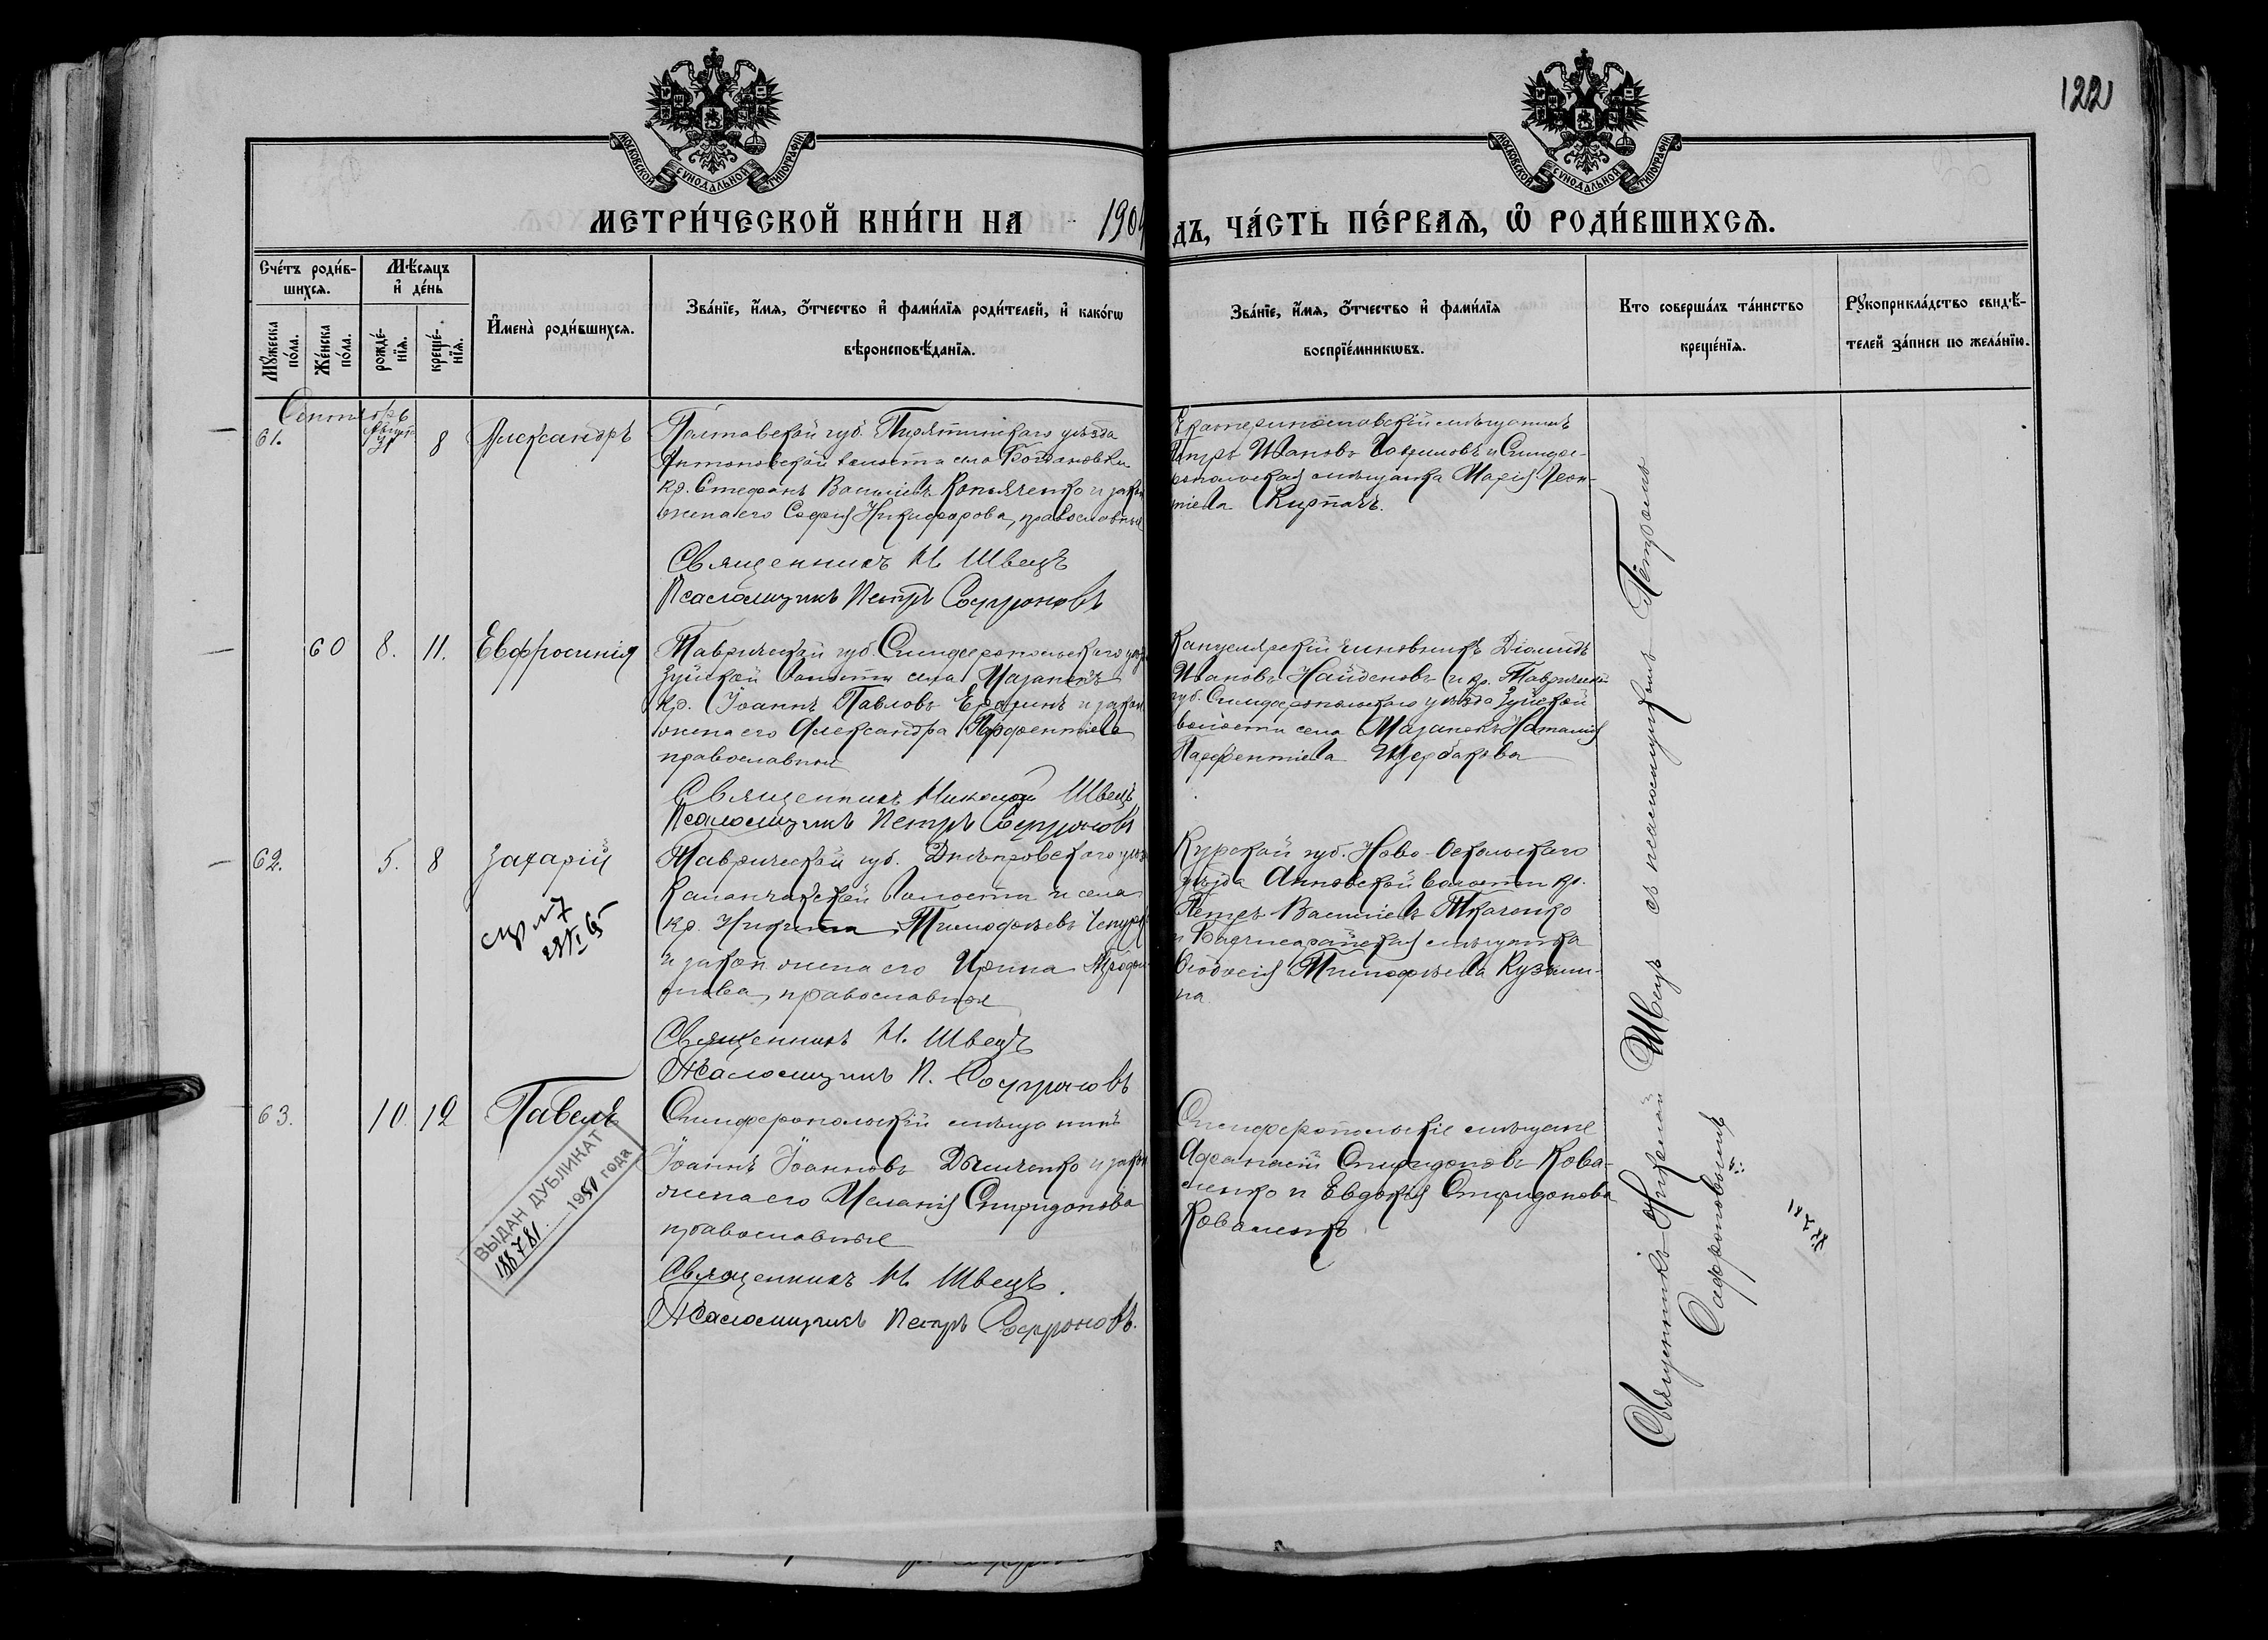 122
МОСКОВСКОЙ СѴНОДАЛЬНОЙ ТИПОГРАФІИ
МОСКОВСКОЙ СѴНОДАЛЬНОЙ ТИПОГРАФІИ
МЕТРИ́ЧЕСКОЙ КНИ́ГИ НА 190
дъ, ЧА́СТЬ ПЕ́РВАѦ, Ѿ РОДИ́ВШИХСѦ.
Сче́тъ роди́в-
шихсѧ.
Мꙋ́жеска по́ла.
Же́нска по́ла.
Мѣ́сѧцъ
и҆ де́нь
рожде́-
нїѧ.
креще́-
нїѧ.
И҆мена̀ роди́вшихсѧ.
Зва́нїе, и҆́мѧ, ѻ҆́тчество и҆ фами́лїѧ роди́телей, и҆ како́гѡ
вѣроисповѣ́данїѧ.
Зва́нїе, и҆́мѧ, ѻ҆́тчество и҆ фами́лїѧ
воспрїе́мникѡвъ.
Кто соверша́лъ та́инство
креще́нїѧ.
Рꙋкоприкла́дство свидѣ́-
телей за́писи по жела́нїю.
Сентябрь
61.
Август
31
8
Александръ
Полтавской губ. Пирятинскаго уѣзда
Антоновской волости села Богдановки
кр. Стефанъ Васильевъ Копьяченко и закон
жена его Софія Никифорова, православные
Священникъ Н Швецъ
Псаломщикъ Петръ Софроновъ
Екатеринославскій мѣщанинъ
Петръ Ивановъ Гавриловъ и Симфе-
ропольская мѣщанка Марія Леон-
тіева Кирпачъ.
60
8.
11.
Евфросинія
Таврической губ. Симферопольскаго уѣзд
Зуйской волости села Мазанокъ
кр. Іоаннъ Павловъ Ерохинъ и закон
жена его Александра Парфентіева
православные
Священникъ Николай Швецъ
Псаломщикъ Петръ Софроновъ
Канцелярскій чиновникъ Діомидъ
Ивановъ Найденовъ и кр. Таврической
губ. Симферопольскаго уѣзда Зуйской
волости села Мазанокъ Наталія
Парфентіева Щербакова
62.
5.
8
Захарій
Таврической губ. Днѣпровскаго уѣз
Каланчакской волости и села
кр. Никита Тимофеевъ Чепур
и закон жена его Ирина
православные
Священникъ Н. Швецъ
Псаломщикъ П. Софроновъ
Курской губ. Ново-Оскольскаго
уѣзда Анновской волости кр.
Петръ Васильевъ Ткаченко
и Бахчисарайская мѣщанка
Ѳеодосія Тимофеева Кузьми-
на
63.
10
12
Павелъ
ВЫДАН ДУБЛИКАТ
186781 1951 года
Симферопольскій мѣщанинъ
Іоаннъ Іоанновъ Дьяченко и закон
жена его Меланія Спиридонова
православные
Священникъ Н Швецъ.
Псаломщикъ Петръ Софроновъ.
Симферопольскіе мѣщане
Афанасій Спиридоновъ Кова-
ленко и Евдокія Спиридонова
Коваленко
Священникъ Николай Швецъ съ псаломщикомъ Петромъ
Софроновымъ